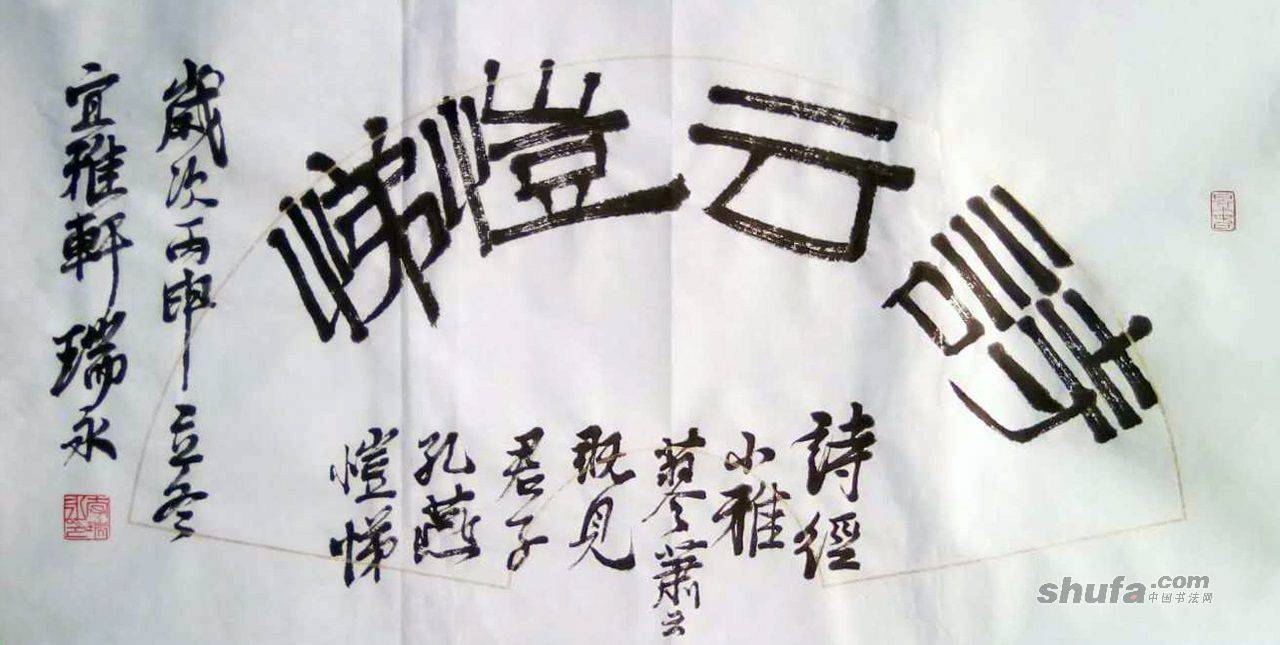 詩云愷悌
詩經
小雅
蓼蕭云
既見
君子
孔燕
愷悌
歲次丙申立冬
宜雅軒瑞永
shufa.com
中国书法网